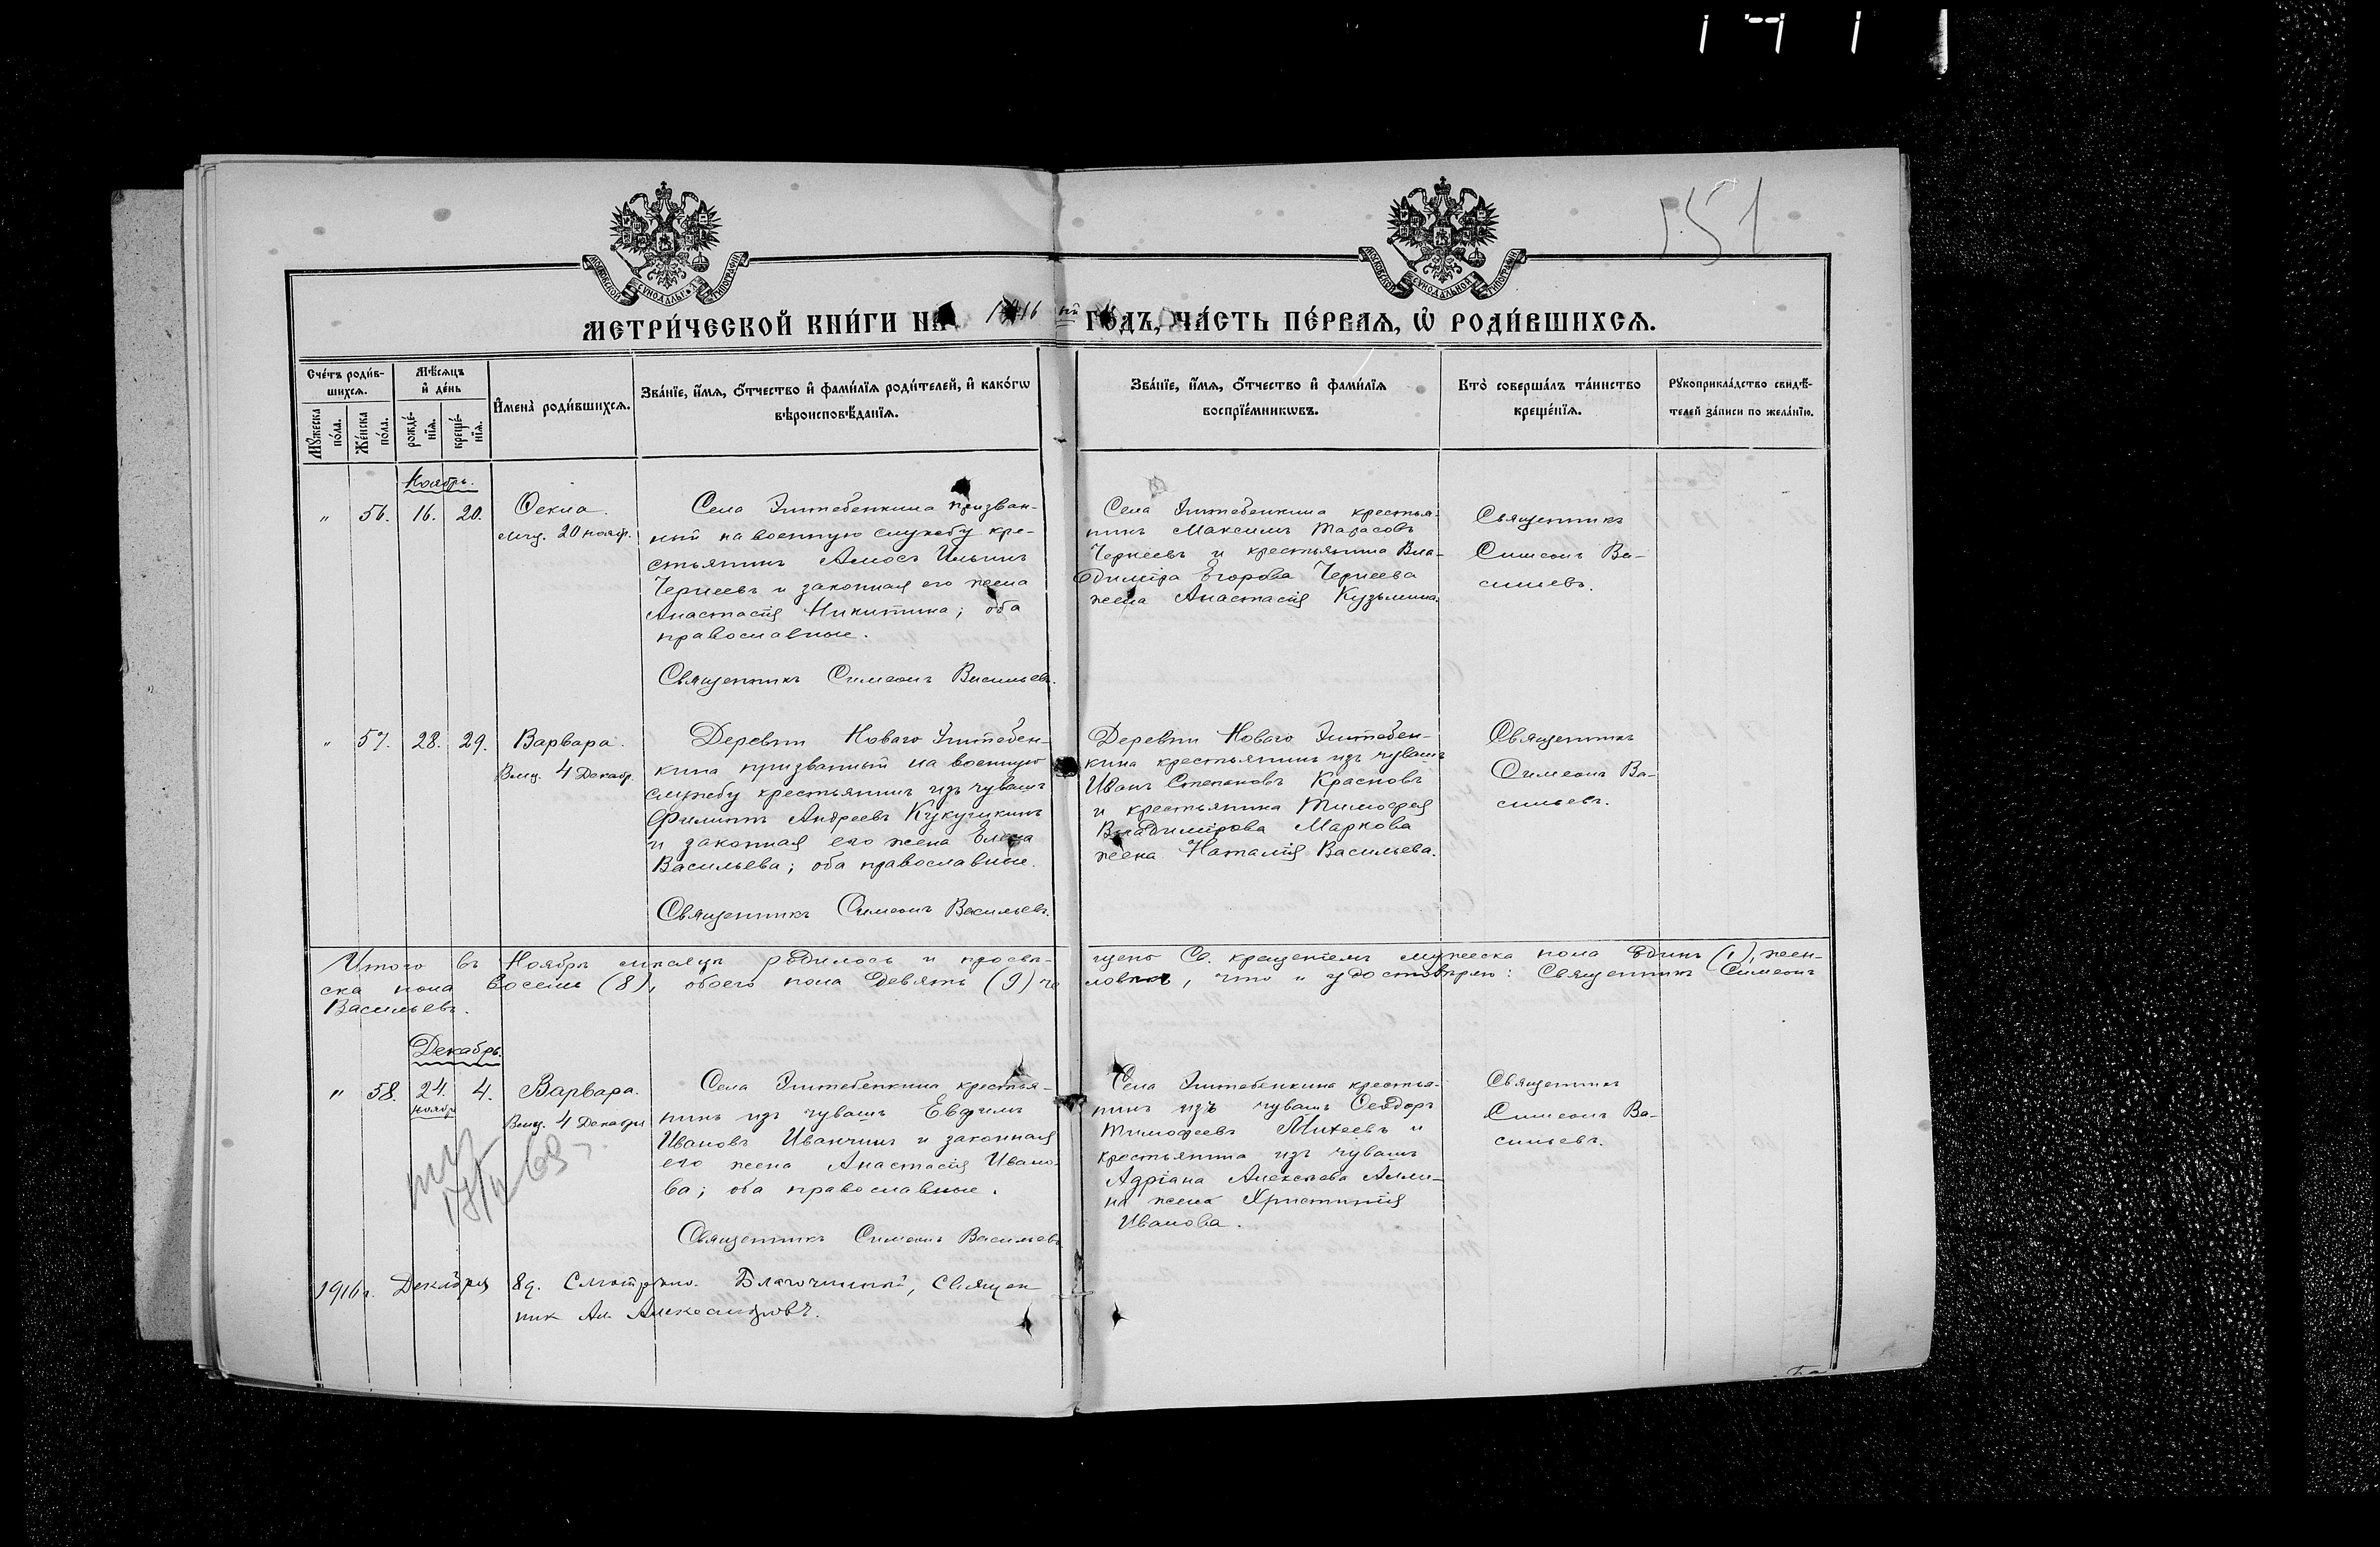 151
МОСКОВСКОЙ СѴНОДАЛЬНОЙ ТИПОГРАФІИ
МОСКОВСКОЙ СѴНОДАЛЬНОЙ ТИПОГРАФІИ
МЕТРИ́ЧЕСКОЙ КНИ́ГИ НА 1916 ый ГО́ДЪ, ЧА́СТЬ ПЕ́РВАѦ, Ѡ РОДИ́ВШИХСѦ.
Сче́тъ роди́в-
шихсѧ.
Мꙋ́жеска
по́ла.
Же́нска
по́ла.
Мѣ́сѧцъ
и҆ де́нь
рожде́-
нїѧ.
креще́-
нїѧ.
И҆мена̀ роди́вшихсѧ.
Зва́нїе, и҆́мѧ, ѻ҆́тчество и҆ фами́лїѧ роди́телей, и҆ како́гѡ
вѣроисповѣ́данїѧ.
Зва́нїе, и҆́мѧ, ѻ҆́тчество и҆ фами́лїѧ
воспрїе́мникѡвъ.
Кто̀ соверша́лъ та́инство
креще́нїѧ.
Рꙋкоприкла́дство свидѣ́-
телей за́писи по жела́нїю.
Ноябрь.
" 56. 16. 20.
Ѳекла.
мчц. 20 нояб.
Села Эштебенкина призван-
ный на военную службу кре-
стьянинъ Амосъ Ильинъ
Чернеевъ и законная его жена
Анастасія Никитина; оба
православные.
Священникъ Симеонъ Васильевъ.
Села Эштебенкина крестья-
нинъ Максимъ Тарасовъ
Чернеевъ и крестьянина Вла-
диміра Егорова Чернеева
жена Анастасія Кузьмина.
Священникъ
Симеонъ Ва-
сильевъ.
" 57. 28. 29.
Варвара.
Вмц. 4 Декабр.
Деревни Новаго Эштебен-
кина призванный на военную
службу крестьянинъ изъ чувашъ
Филиппъ Андреевъ Кукушкинъ
и законная его жена Елена
Васильева; оба православные.
Священникъ Симеонъ Васильевъ.
Деревни Новаго Эштебен-
кина крестьянинъ изъ чувашъ
Иванъ Степановъ Красновъ
и крестьянина Тимофея
Владимірова Маркова
жена Наталія Васильева.
Священникъ
Симеонъ Ва-
сильевъ.
Итого въ Ноябрѣ мѣсяцѣ родилось и просвѣ-щено Св. крещеніемъ мужеска пола одинъ (1), жен-
ска пола восемь (8), обоего пола девять (9) че-ловѣкъ, что и удостовѣряю: Священникъ Симеонъ
Васильевъ.
Декабрь.
" 58. 24. 4.
Ноябр
Варвара.
Вмц. 4 Декабря
Села Эштебенкина крестья-
нинъ изъ чувашъ Евфимъ
Ивановъ Иванчинъ и законная
его жена Анастасія Ивано-
ва; оба православные.
Священникъ Симеонъ Васильевъ
Села Эштебенкина крестья-
нинъ изъ чувашъ Ѳеодоръ
Тимофеевъ Михеевъ и
крестьянина изъ чувашъ
Адріана Алексѣева
жена Христинія
Иванова.
Священникъ
Симеонъ Ва-
сильевъ.
1916 г. Декабря 8 д. Смотрѣно. Благочинный, Священ-
ник Ал. Александровъ.